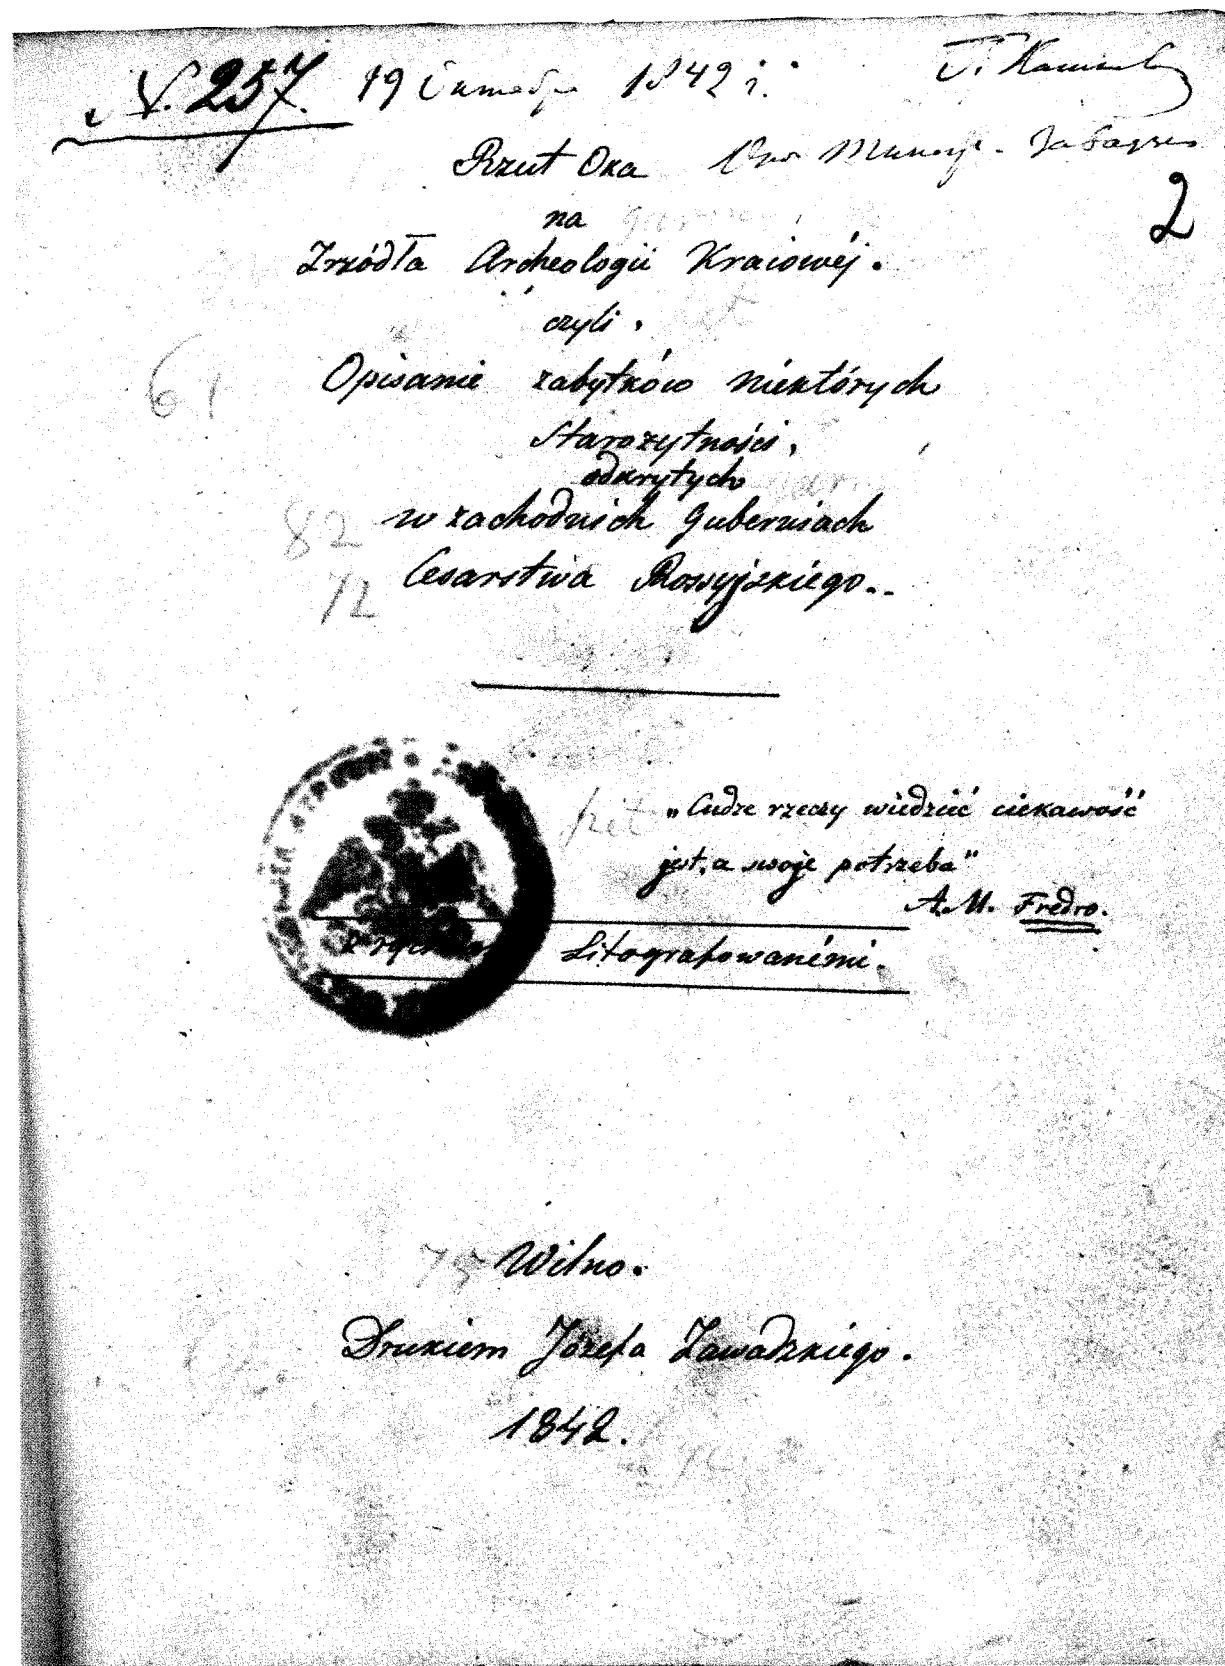 N. 257. 19 1842 г.
2
Rzut Oka
na
Zrzódła Archeologii Kraiowéj.
czyli,
Opisanie zabytków niektórych
Starożytności,
odkrytych
w zachodnich Guberniach
Cesarstwa Rossyjskiego..
61
82
72
„Cudze rzeczy wiedzieć ciekawość
jest, a swoje potrzeba"
A. M. Fredro.
Litografowanémi.
75
Wilno.
Drukiem Józefa Zawadzkiego.
1842.